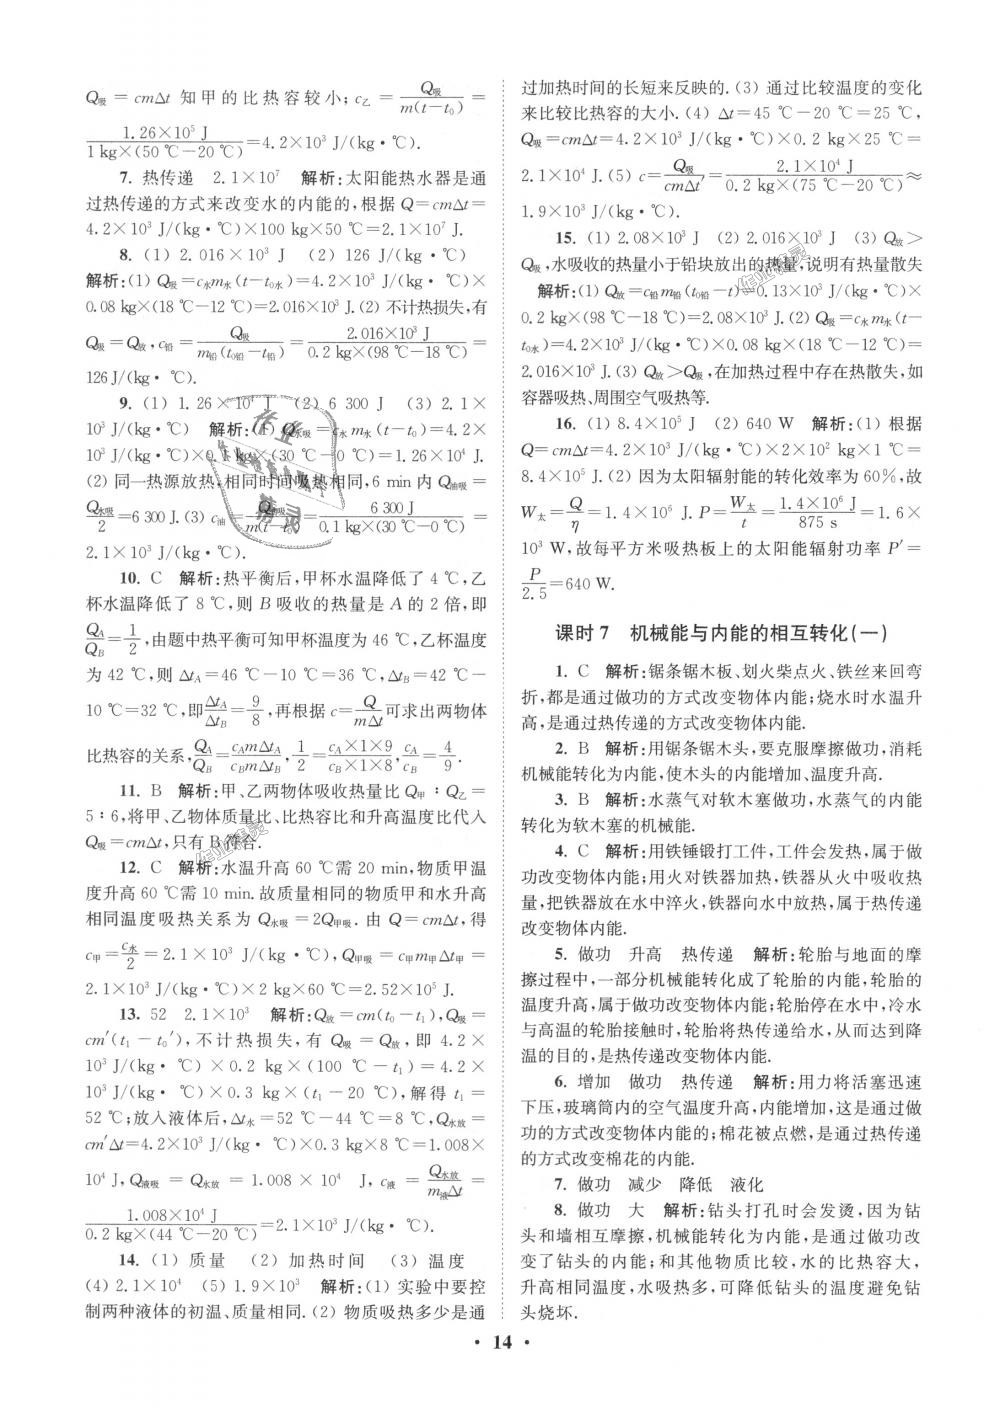 Q吸=cmΔt 知甲的比热容较小;c乙=Q吸/m(t-t₀)=
1.26×10⁵ J/1 kg×(50 ℃-20 ℃)=4.2×10³ J/(kg·℃).
7. 热传递 2.1×10⁷ 解析:太阳能热水器是通
过热传递的方式来改变水的内能的,根据 Q=cmΔt=
4.2×10³ J/(kg·℃)×100 kg×50 ℃=2.1×10⁷ J.
8. (1) 2.016×10³ J (2) 126 J/(kg·℃)
解析:(1) Q吸=c水m水(t-t0水)=4.2×10³ J/(kg·℃)×
0.08 kg×(18 ℃-12 ℃)=2.016×10³ J.(2) 不计热损失,有
Q吸=Q放,c铅=Q吸/m铅(t0铅-t铅)=2.016×10³ J/0.2 kg×(98 ℃-18 ℃)=
126 J/(kg·℃).
9. (1) 1.26×10⁴ J (2) 6 300 J (3) 2.1×
10³ J/(kg·℃) 解析:(1) Q水吸=c水m水(t-t₀)=4.2×
10³ J/(kg·℃)×0.1 kg×(30 ℃-0 ℃)=1.26×10⁴ J.
(2) 同一热源放热,相同时间吸热相同,6 min内 Q油吸=
Q水吸/2=6 300 J.(3) c油=Q油吸/m(t-t₀)=6 300 J/0.1 kg×(30 ℃-0 ℃)=
2.1×10³ J/(kg·℃).
10. C 解析:热平衡后,甲杯水温降低了 4 ℃,乙
杯水温降低了 8 ℃,则 B 吸收的热量是 A 的 2 倍,即
QA/QB=1/2,由题中热平衡可知甲杯温度为 46 ℃,乙杯温度
为 42 ℃,则 ΔtA=46 ℃-10 ℃=36 ℃,ΔtB=42 ℃-
10 ℃=32 ℃,即ΔtA/ΔtB=9/8,再根据 c=Q/mΔt可求出两物体
比热容的关系,QA/QB=cAmΔtA/cBmΔtB,1/2=cA×1×9/cB×1×8,cA/cB=4/9.
11. B 解析:甲、乙两物体吸收热量比 Q甲∶Q乙=
5∶6,将甲、乙物体质量比、比热容比和升高温度比代入
Q吸=cmΔt,只有 B 符合.
12. C 解析:水温升高 60 ℃需 20 min,物质甲温
度升高 60 ℃需 10 min.故质量相同的物质甲和水升高
相同温度吸热关系为 Q水吸=2Q甲吸.由 Q=cmΔt,得
c甲=c水/2=2.1×10³ J/(kg·℃),Q甲吸=c甲m甲Δt甲=
2.1×10³ J/(kg·℃)×2 kg×60 ℃=2.52×10⁵ J.
13. 52 2.1×10³ 解析:Q放=cm(t₀-t₁),Q吸=
cm′(t₁-t₀′),不计热损失,有 Q吸=Q放,即 4.2×
10³ J/(kg·℃)×0.2 kg×(100 ℃-t₁)=4.2×
10³ J/(kg·℃)×0.3 kg×(t₁-20 ℃),解得 t₁=
52 ℃;放入液体后,Δt水=52 ℃-44 ℃=8 ℃,Q水放=
cm′Δt=4.2×10³ J/(kg·℃)×0.3 kg×8 ℃=1.008×
10⁴ J,Q液吸=Q水放=1.008×10⁴ J,c液=Q水放/m液Δt=
1.008×10⁴ J/0.2 kg×(44 ℃-20 ℃)=2.1×10³ J/(kg·℃).
14. (1) 质量 (2) 加热时间 (3) 温度
(4) 2.1×10⁴ (5) 1.9×10³ 解析:(1) 实验中要控
制两种液体的初温、质量相同.(2) 物质吸热多少是通
过加热时间的长短来反映的.(3) 通过比较温度的变化
来比较比热容的大小.(4) Δt=45 ℃-20 ℃=25 ℃,
Q吸=cmΔt=4.2×10³ J/(kg·℃)×0.2 kg×25 ℃=
2.1×10⁴ J.(5) c=Q吸/cmΔt′=2.1×10⁴ J/0.2 kg×(75 ℃-20 ℃)≈
1.9×10³ J/(kg·℃).
15. (1) 2.08×10³ J (2) 2.016×10³ J (3) Q放>
Q吸,水吸收的热量小于铅块放出的热量,说明有热量散失
解析:(1) Q放=c铅m铅(t0铅-t)=0.13×10³ J/(kg·℃)×
0.2 kg×(98 ℃-18 ℃)=2.08×10³ J.(2) Q吸=c水m水(t-
t0水)=4.2×10³ J/(kg·℃)×0.08 kg×(18 ℃-12 ℃)=
2.016×10³ J.(3) Q放>Q吸,在加热过程中存在热散失,如
容器吸热、周围空气吸热等.
16. (1) 8.4×10⁵ J (2) 640 W 解析:(1) 根据
Q=cmΔt=4.2×10³ J/(kg·℃)×2×10² kg×1 ℃=
8.4×10⁵ J.(2) 因为太阳辐射能的转化效率为 60%,故
W太=Q/η=1.4×10⁶ J.P=W太/t=1.4×10⁶ J/875 s=1.6×
10³ W,故每平方米吸热板上的太阳能辐射功率 P′=
P/2.5=640 W.
课时 7 机械能与内能的相互转化(一)
1. C 解析:锯条锯木板、划火柴点火、铁丝来回弯
折,都是通过做功的方式改变物体内能;烧水时水温升
高,是通过热传递的方式改变物体内能.
2. B 解析:用锯条锯木头,要克服摩擦做功,消耗
机械能转化为内能,使木头的内能增加、温度升高.
3. B 解析:水蒸气对软木塞做功,水蒸气的内能
转化为软木塞的机械能.
4. C 解析:用铁锤锻打工件,工件会发热,属于做
功改变物体内能;用火对铁器加热,铁器从火中吸收热
量,把铁器放在水中淬火,铁器向水中放热,属于热传递
改变物体内能.
5. 做功 升高 热传递 解析:轮胎与地面的摩
擦过程中,一部分机械能转化成了轮胎的内能,轮胎的
温度升高,属于做功改变物体内能;轮胎停在水中,冷水
与高温的轮胎接触时,轮胎将热传递给水,从而达到降
温的目的,是热传递改变物体内能.
6. 增加 做功 热传递 解析:用力将活塞迅速
下压,玻璃筒内的空气温度升高,内能增加,这是通过做
功的方式改变物体内能的;棉花被点燃,是通过热传递
的方式改变棉花的内能.
7. 做功 减少 降低 液化
8. 做功 大 解析:钻头打孔时会发烫,因为钻
头和墙相互摩擦,机械能转化为内能,是通过做功改变
了钻头的内能;和其他物质比较,水的比热容大,
升高相同温度,水吸热多,可降低钻头的温度避免钻
头烧坏.
·14·